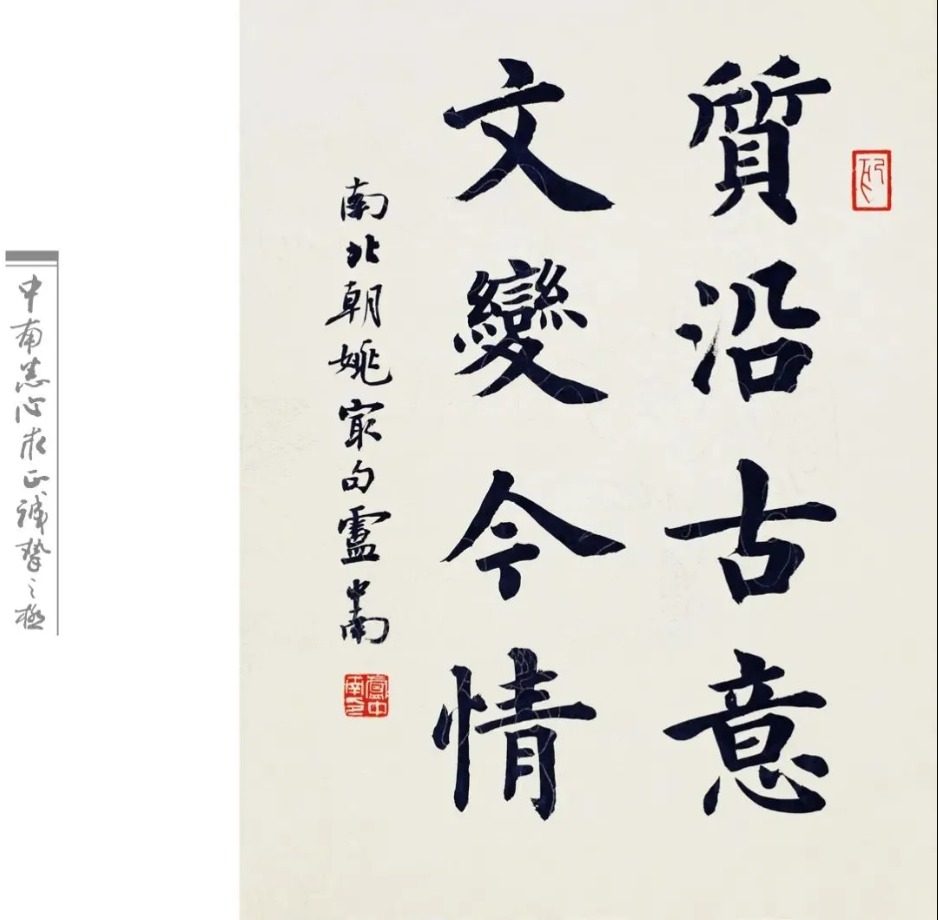 質沿古意
文變今情
南北朝姚㝡句盧中南
盧中南印
中南悉心求正誠摯之極